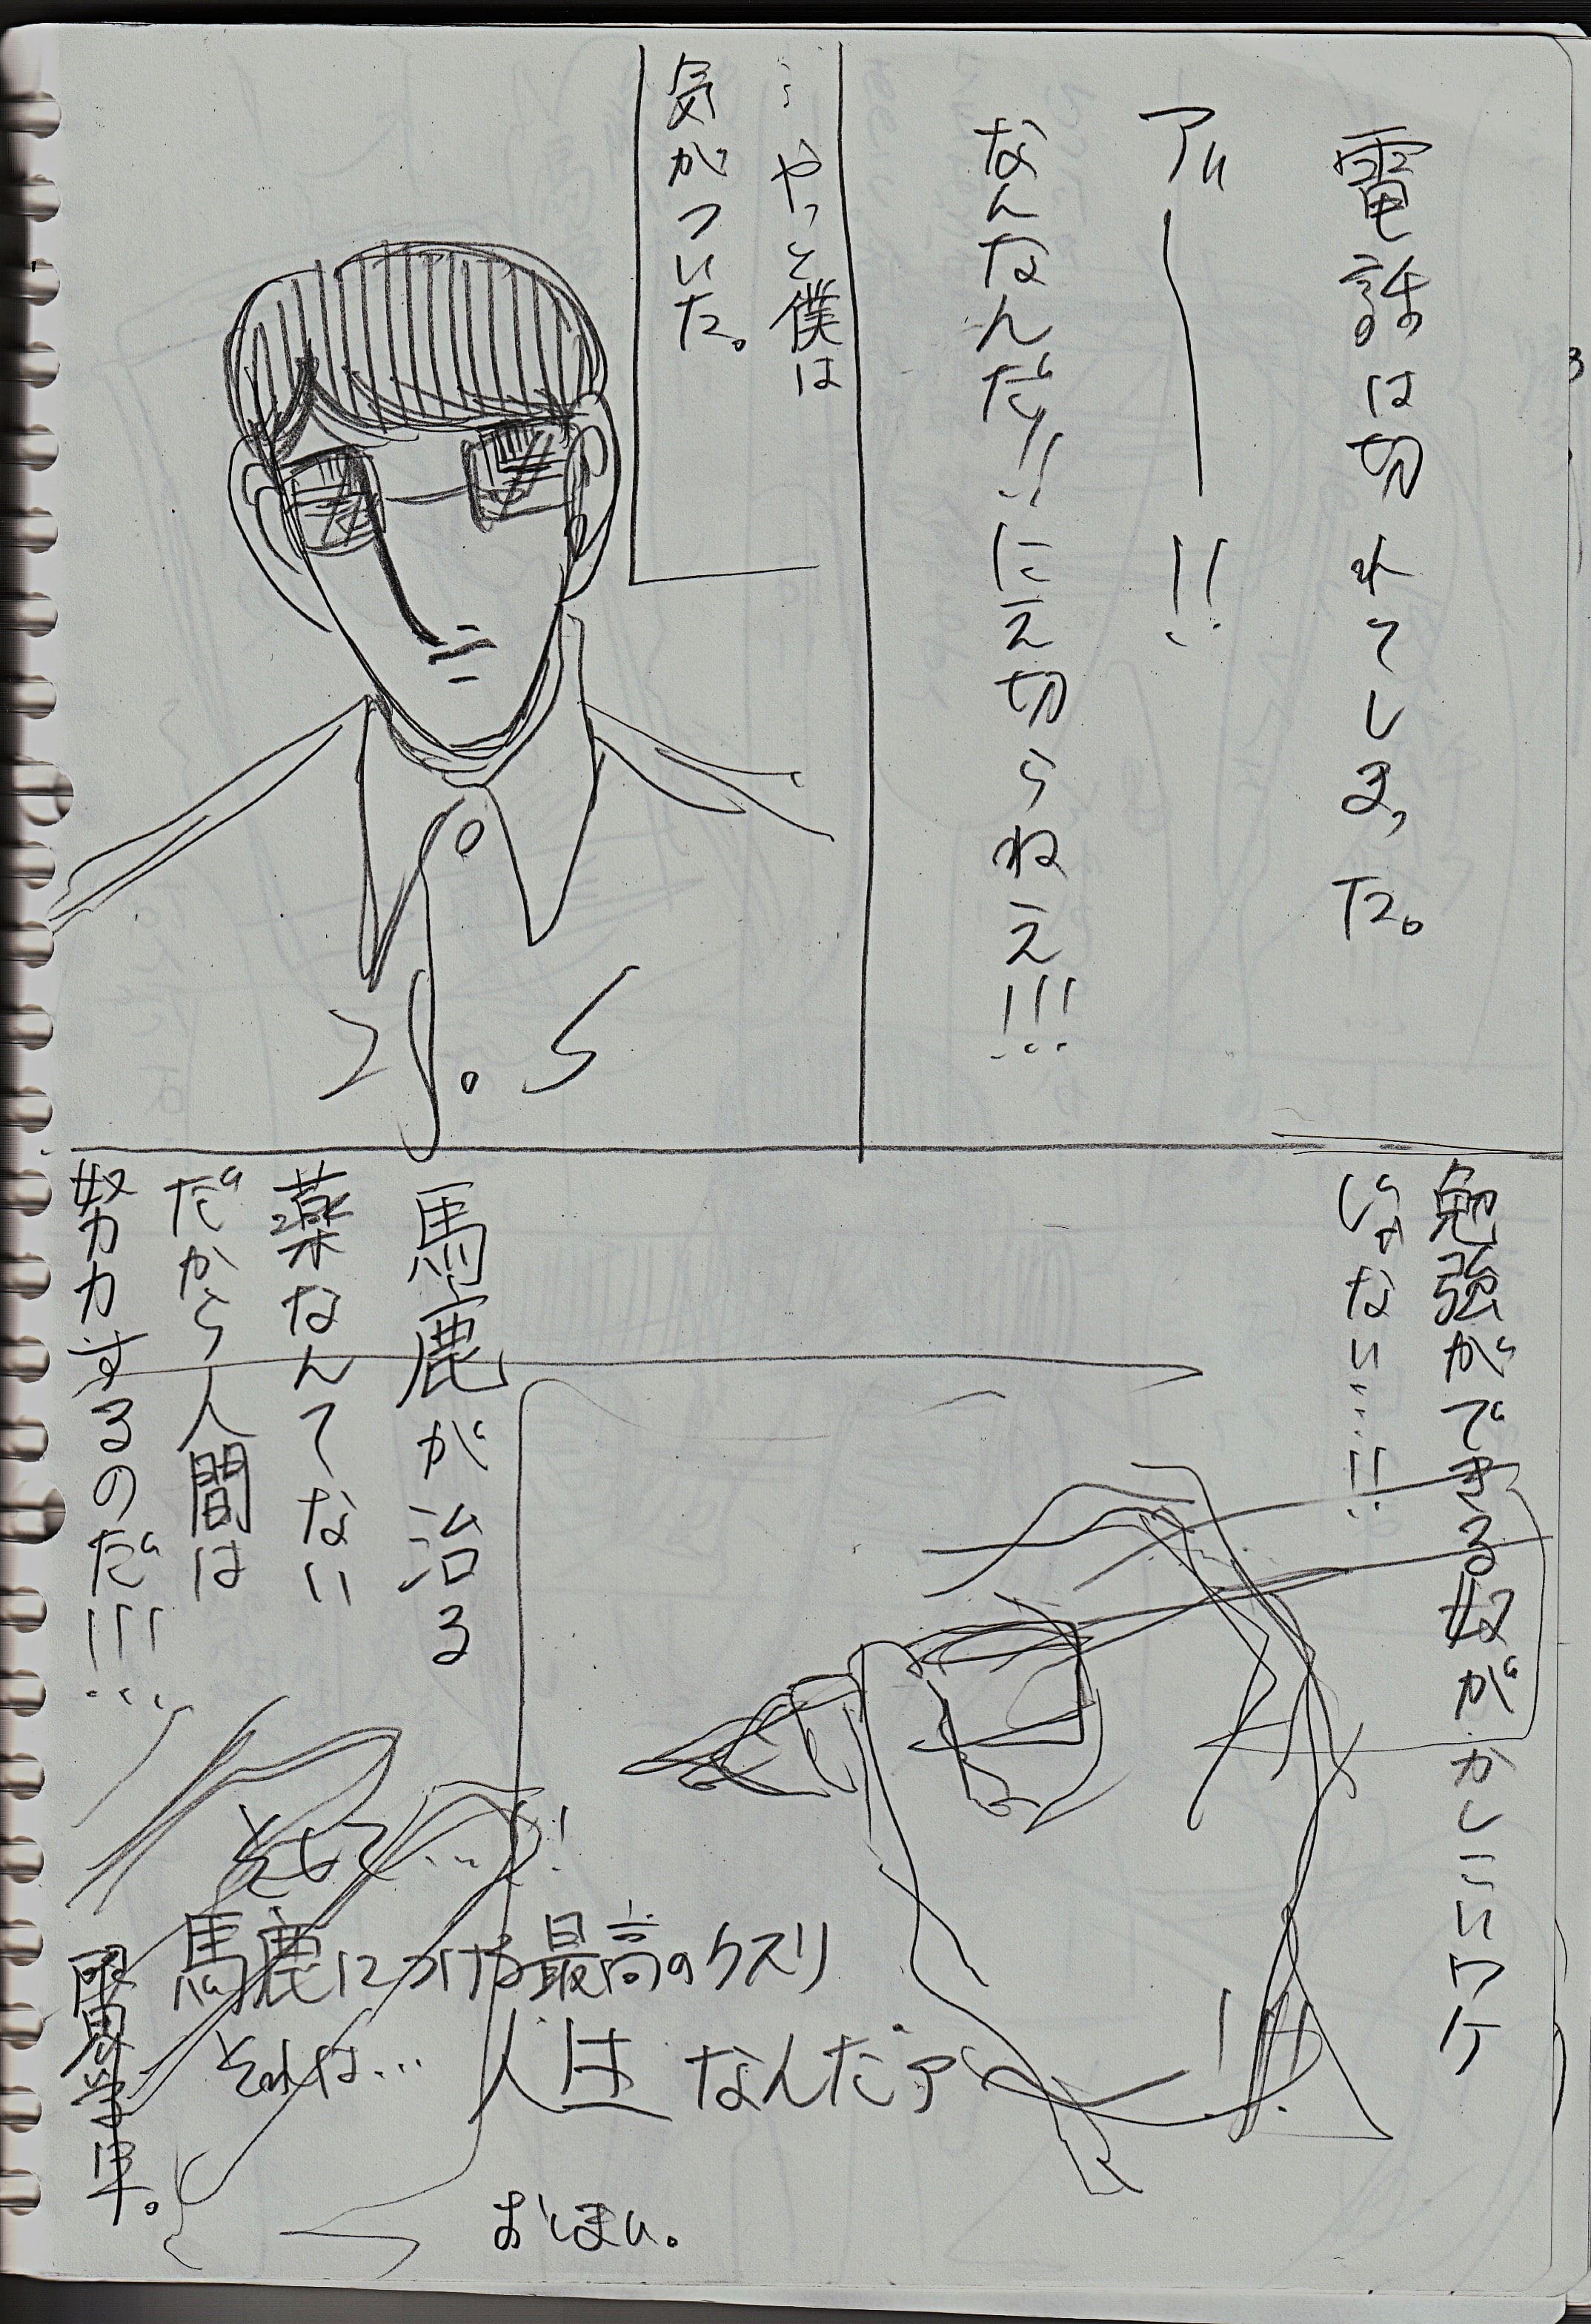 電話は切れてしまった。
アル――!!
なんなんだ!!にえ切らねえ!!!
…やっと僕は
気がついた。
29.5
勉強ができる奴がかしこいワケ
じゃない…!!
馬鹿が治る
薬なんてない
だから人間は
努力するのだ!!!…
そして…!
馬鹿につける最高のクスリ
それは…
人生なんだァ――!!!
おしまい。